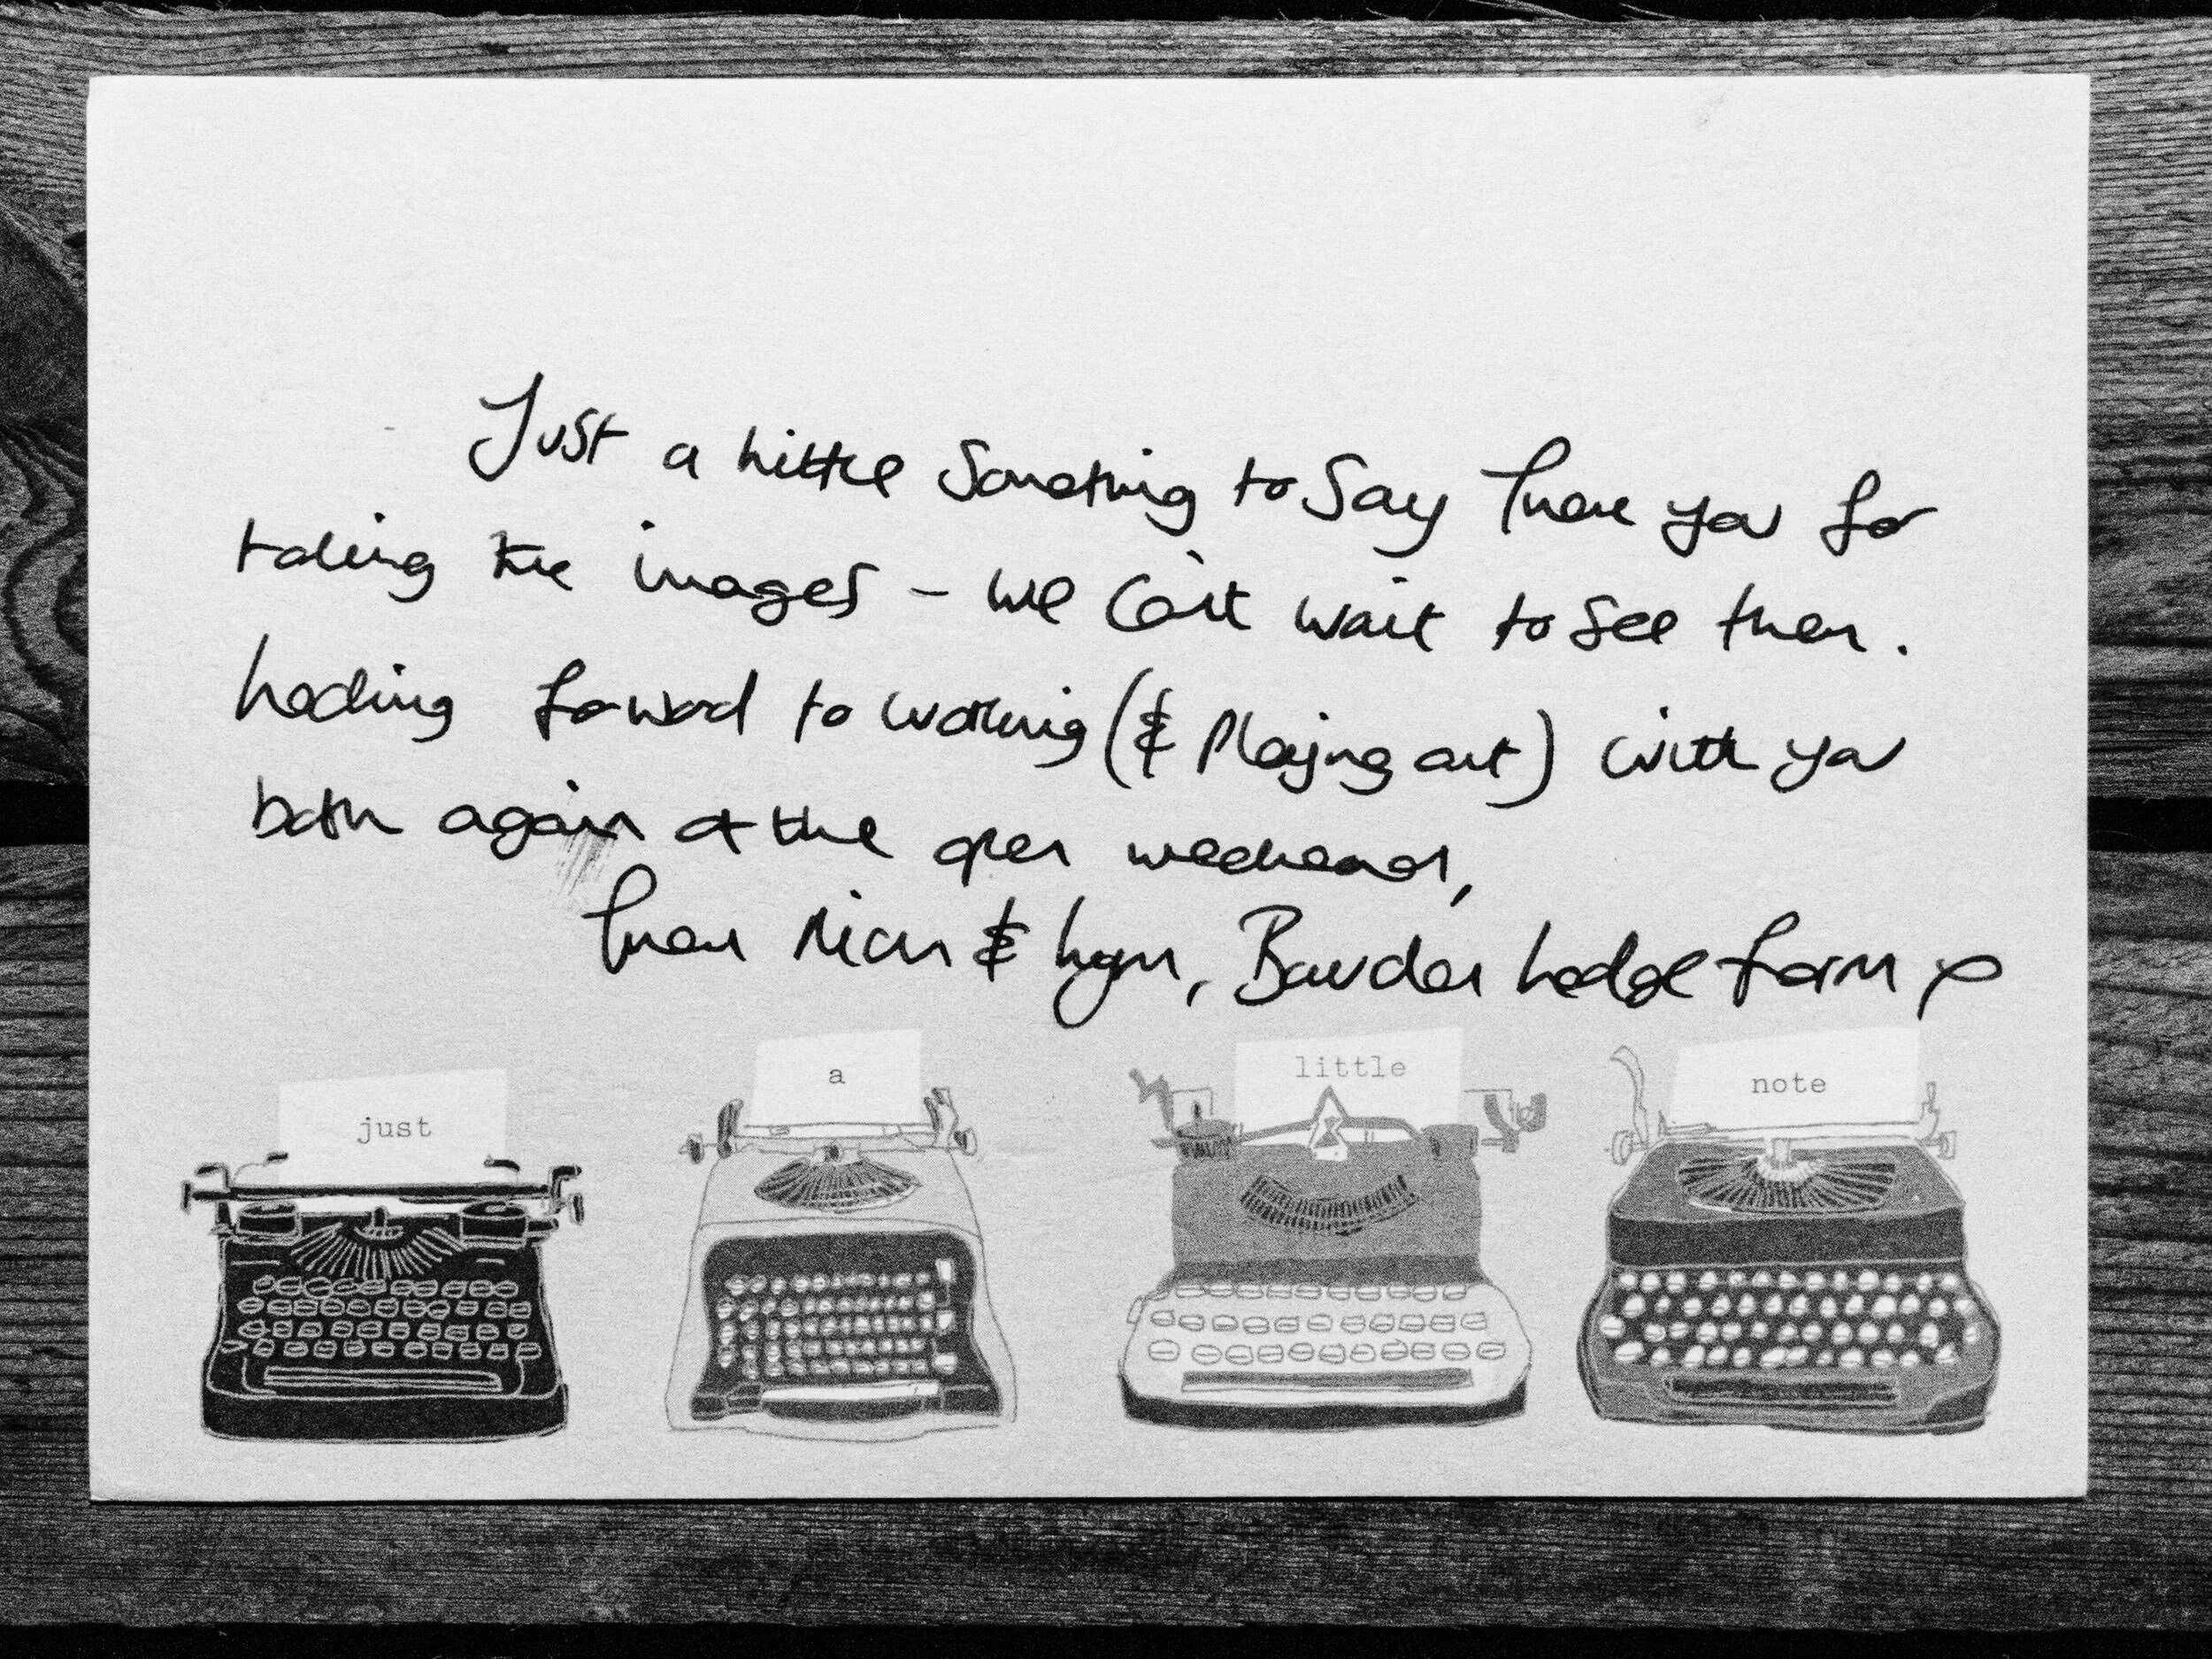 Just a little Something to Say Thank you for
taking the images - we can't wait to see them.
Looking forward to working (& Playing out) with you
both again at the open weekend,
from & Lynn, Farm x
just
a
little
note